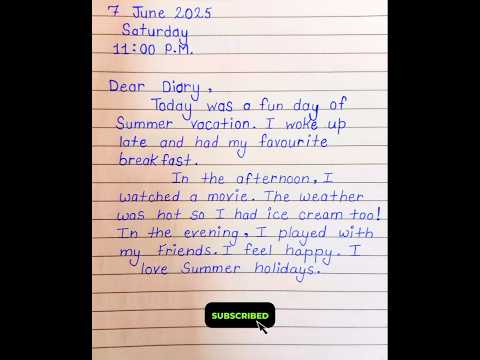 7 June 2025
Saturday
11:00 P.M.
Dear Diary,
Today was a fun day of
Summer vacation. I woke up
late and had my favourite
breakfast.
In the afternoon, I
watched a movie. The weather
was hot so I had ice cream too!
In the evening, I played with
my Friends. I feel happy. I
love Summer holidays.
SUBSCRIBED